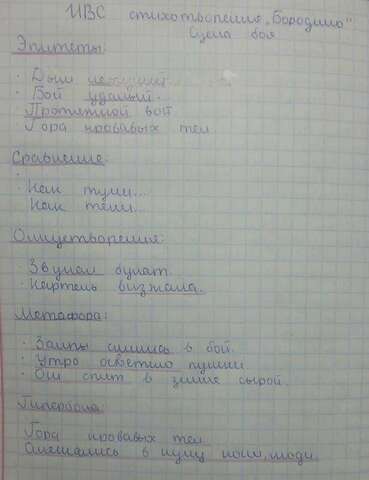 ИВС стихотворения „Бородино"
Сцена боя
Эпитеты:
· Дым летучий...
· Бой удалый...
Протяжной вой
Гора кровавых тел
Сравнение:
·
· Как тучи...
Как тени...
Олицетворения:
· Звучал булат.
· Картечь визжала.
Метафора:
· Залпы слились в бой.
· Утро осветило пушки
· Он спит в земле сырой.
Гипербола
Гора кровавых тел
Смешались в кучу кони, люди